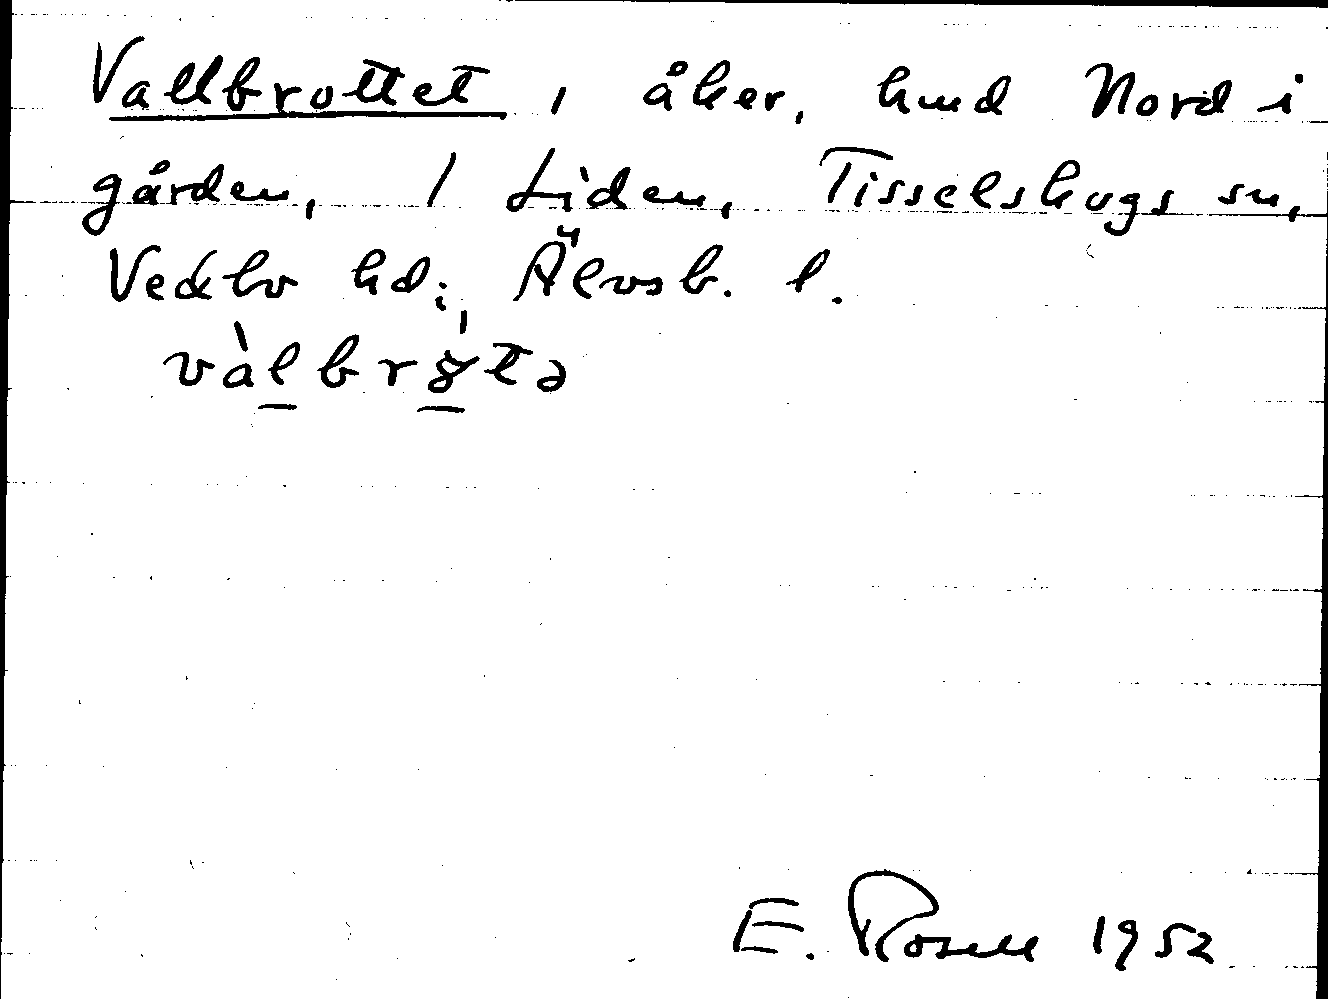 Vallbrottet, åker, hmd Nord i
gården, 1 Liden, Tisselskogs sn,
Vedbo hd, Älvsb. l.
E. Rosell 1952